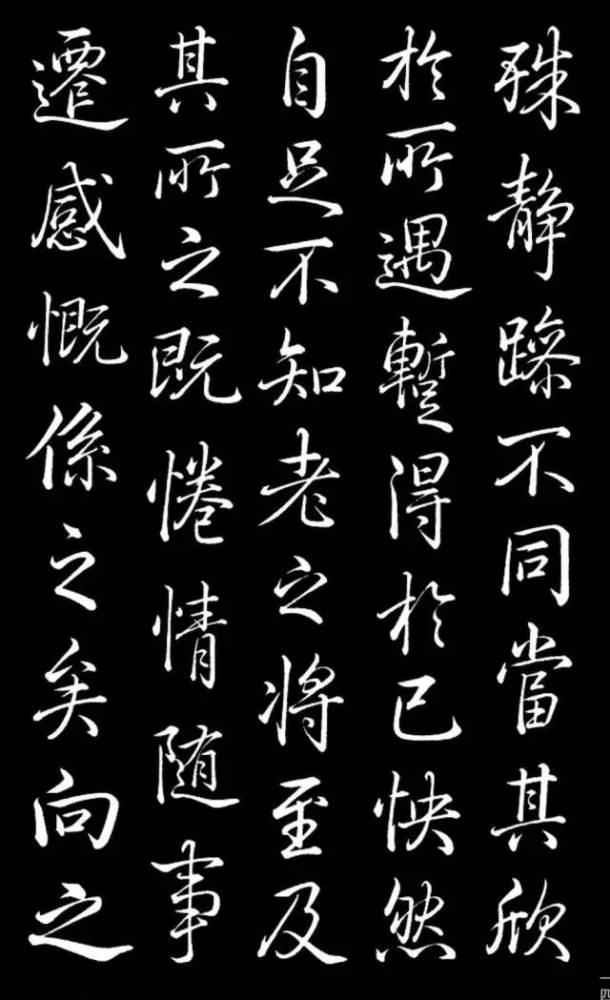 殊静躁不同當其欣
於所遇蹔得於己怏然
自足不知老之將至及
其所之既惓情随事
遷感慨係之矣向之